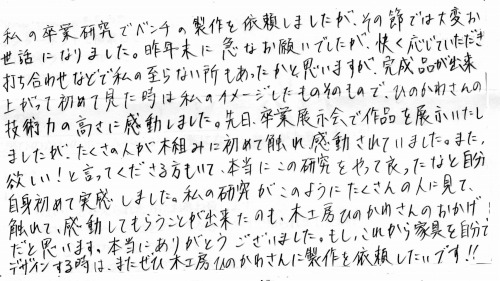 私の卒業研究でベンチの製作を依頼しましたが、その節では大変お
世話になりました。昨年末に急なお願いでしたが、快く応じていただき
打ち合わせなどで私の至らない所もあったかと思いますが、完成品が出来
上がって初めて見た時は私のイメージしたものそのもので、ひのかわさんの
技術力の高さに感動しました。先日、卒業展示会で作品を展示いたし
ましたが、たくさんの人が木組みに初めて触れ、感動されていました。また、
欲しい!と言ってくださる方もいて、本当にこの研究をやって良ったなと自分
自身初めて実感しました。私の研究がこのようにたくさんの人に見て、
触れて、感動してもらうことが出来たのも、木工房ひのかわさんのおかげ
だと思います。本当にありがとうございました。もし、これから家具を自分で
デザインする時は、またぜひ木工房ひのかわさんに製作を依頼したいです!!